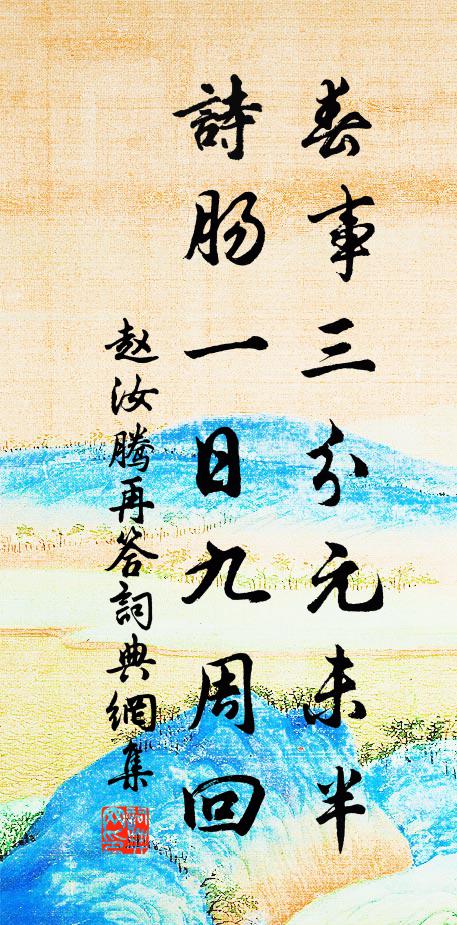 春事三分元未半
詩肠一日九周回
赵汝腾再答詞典網集